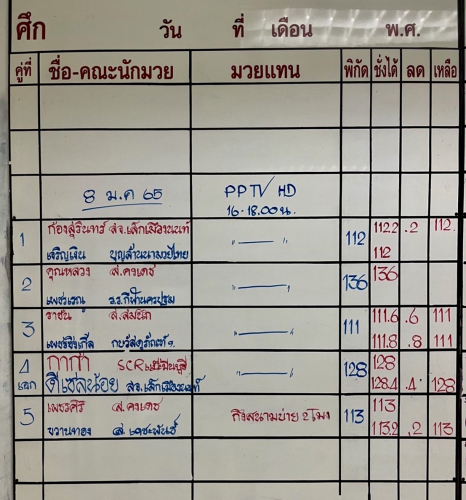 ศึก วัน ที่ เดือน พ.ศ.
คู่ที่ ชื่อ-คณะนักมวย มวยแทน พิกัด ชั่งได้ ลด เหลือ
8 ม.ค 65 PPTV HD
16-18.00 น.
1 ก้องสุรินทร์ สจ.เล็กเมืองนนท์ 112 112.2 .2 112
เจริญเงิน บุญล้านนามวยไทย 112
2 ขุนหลวง ส.คงเดช 136 136
เพชรเรณู
3 ราชัน ส.สมนึก 111 111.6 .6 111
111.8 .8 111
4 กาก้า SCR 128 128
เอก ดีเซลน้อย สจ.เล็กเมืองนนท์ 128.4 .4 128
5 เพชรศิริ ส.คงเดช ถึงสนามบ่าย 2 โมง 113 113
ขวานทอง ส.เดชะพันธ์ 113.2 .2 113